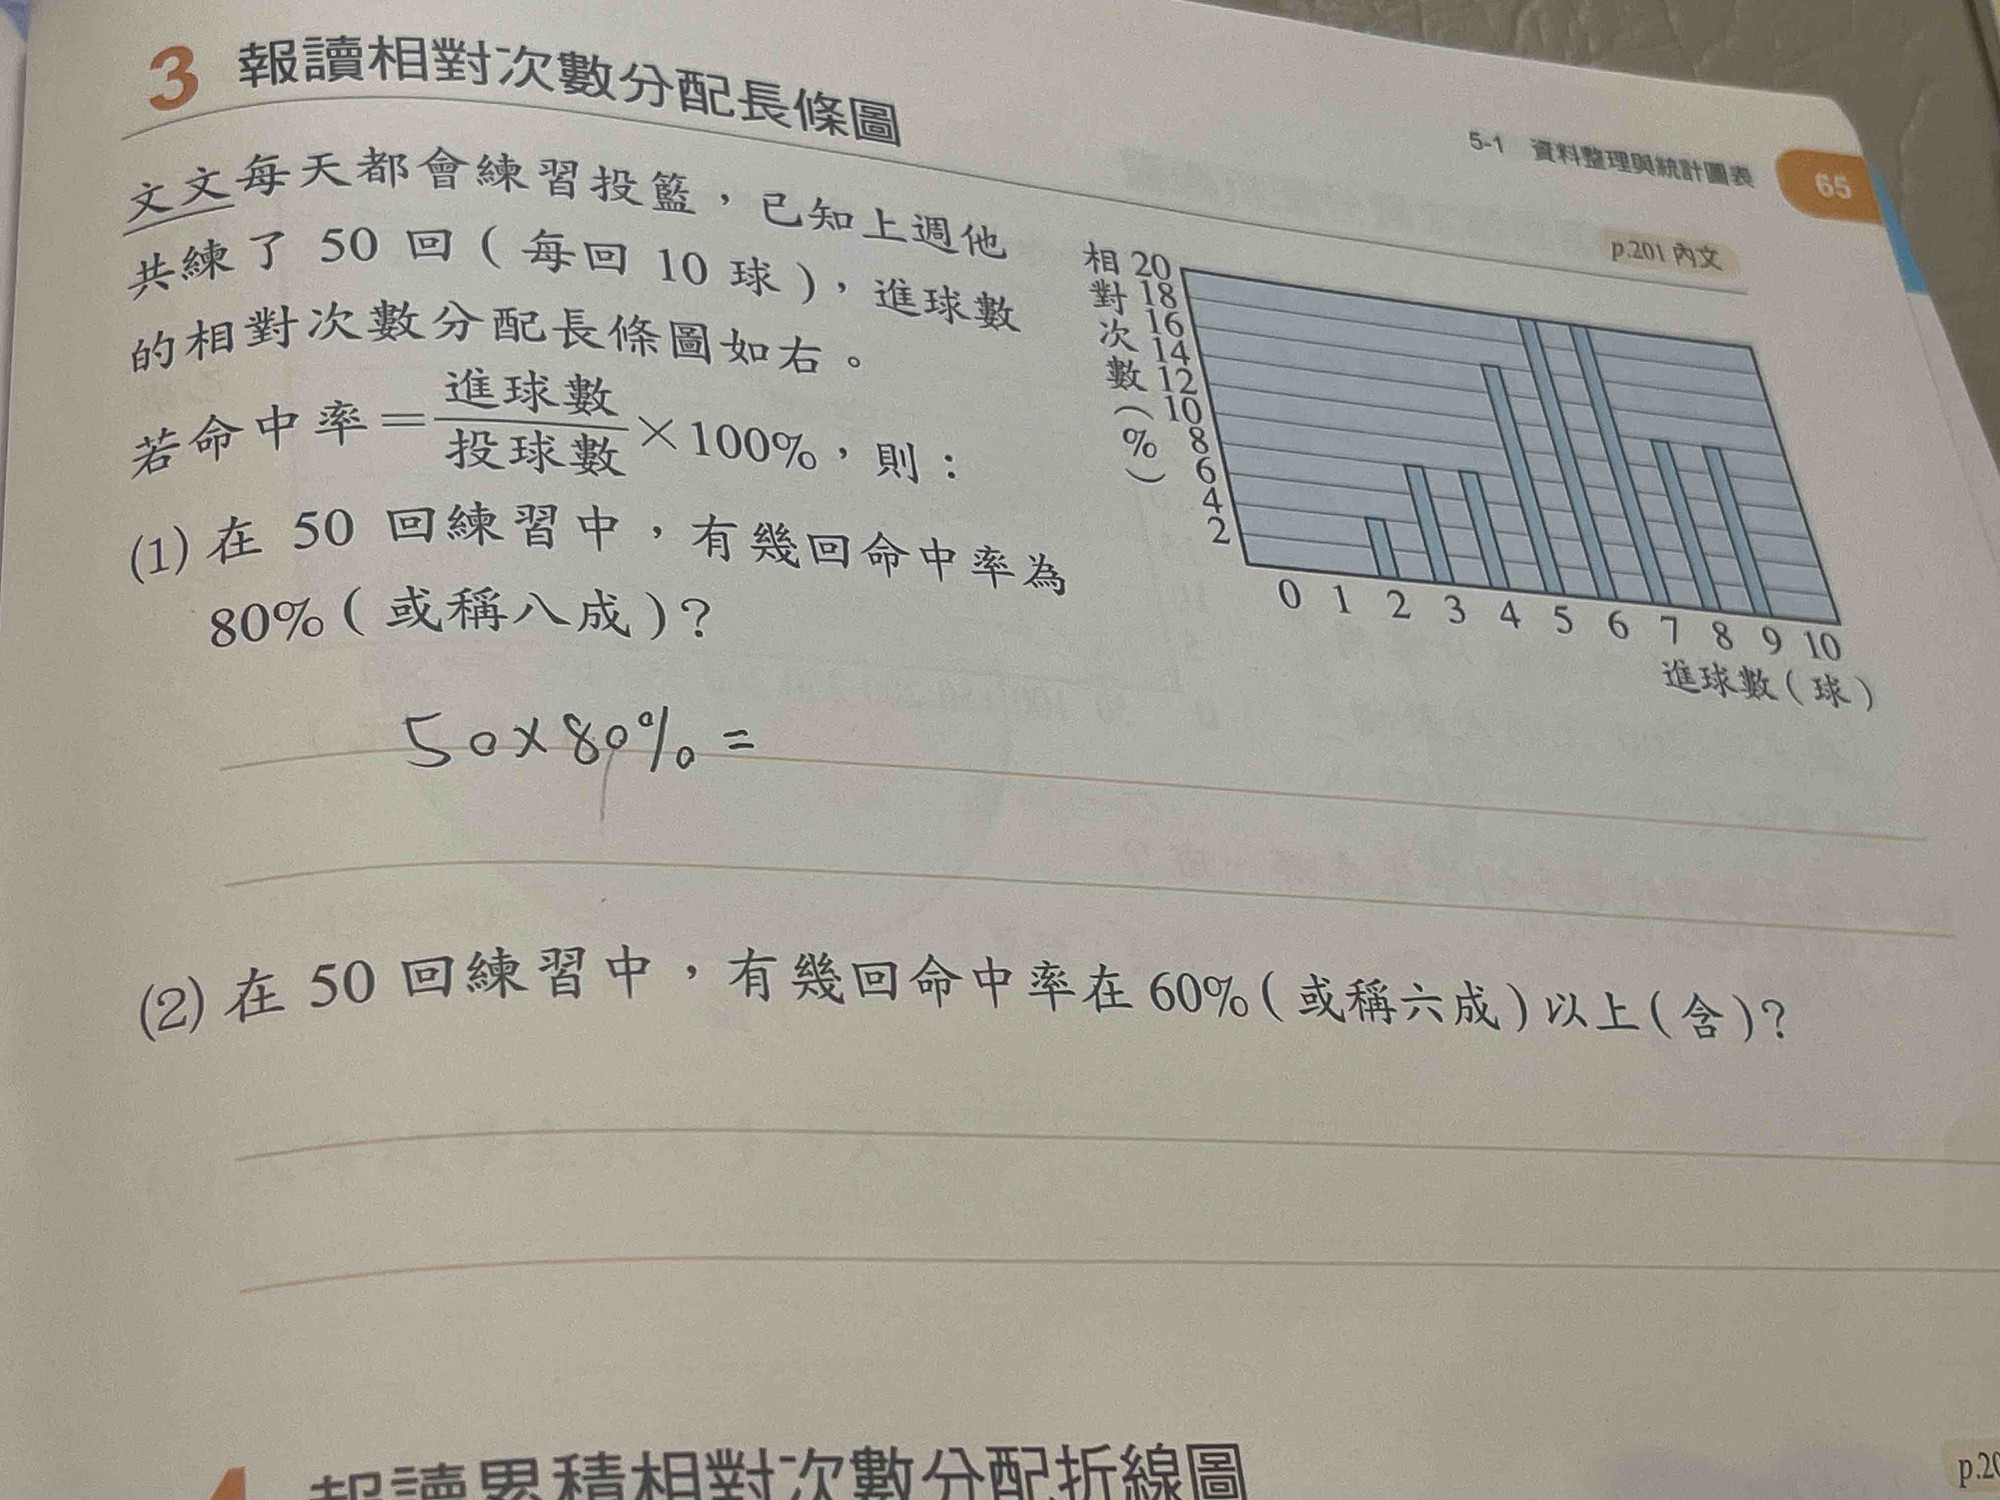 5-1 資料整理與統計圖表 65
3 報讀相對次數分配長條圖
p.201 內文
文文每天都會練習投籃，已知上週他
共練了 50 回（每回 10 球），進球數
的相對次數分配長條圖如右。
若命中率＝進球數/投球數×100%，則：
(1) 在 50 回練習中，有幾回命中率為
80%（或稱八成）？
相對次數（%）
20
18
16
14
12
10
8
6
4
2
0 1 2 3 4 5 6 7 8 9 10
進球數（球）
50×80%=
(2) 在 50 回練習中，有幾回命中率在 60%（或稱六成）以上（含）？
4 報讀累積相對次數分配折線圖